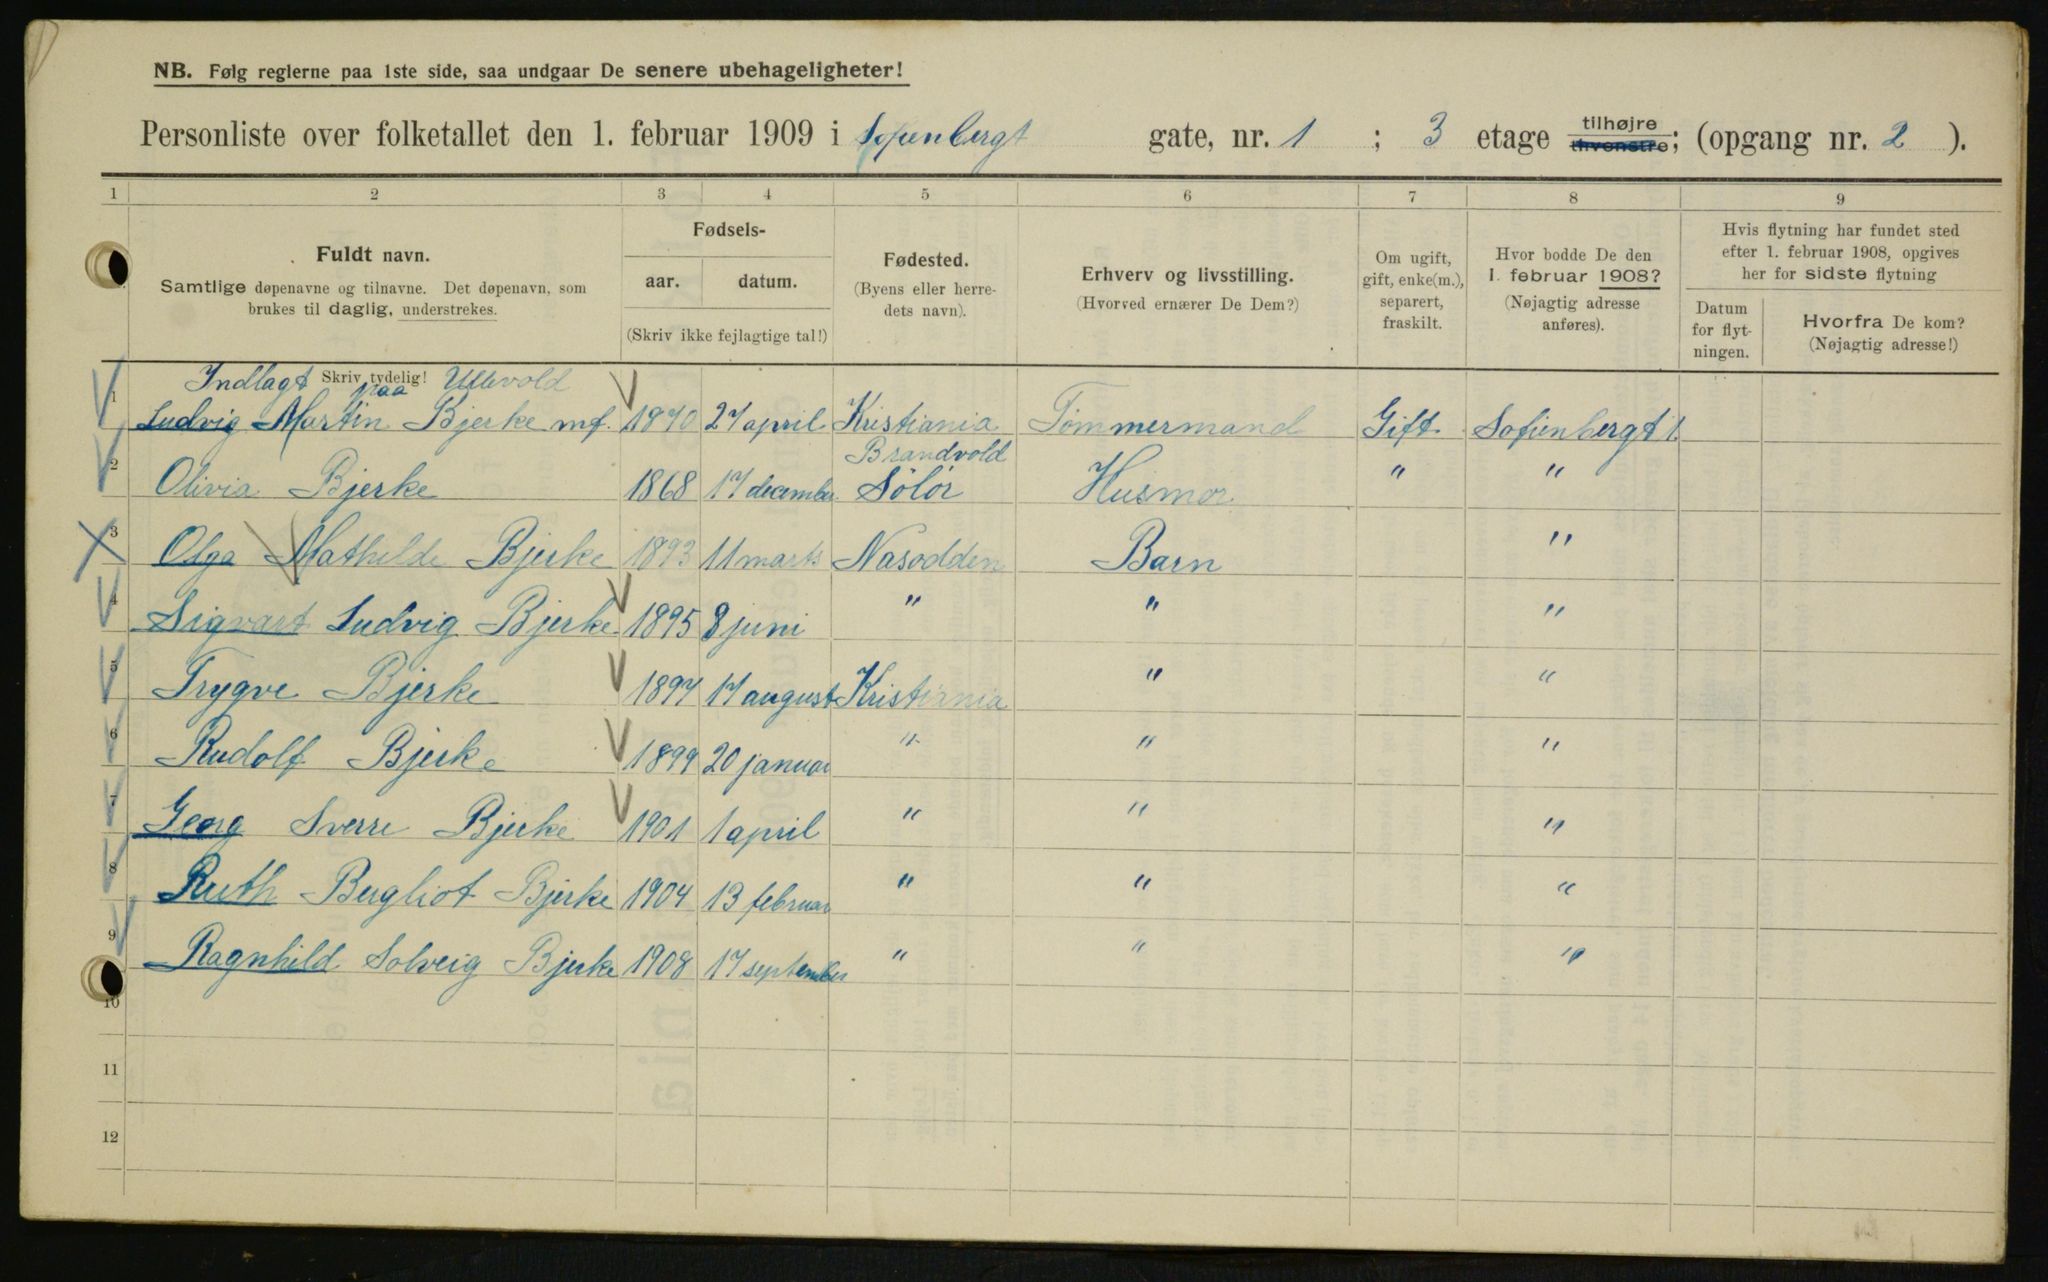 NB. Følg reglerne paa 1ste side, saa undgaar De senere ubehageligheter!
Personliste over folketallet den 1. februar 1909 i Sofienbergt gate, nr. 1 ; 3 etage tilhøjre tilvenstre; (opgang nr. 2 ).
1 2 3 4 5 6 7 8 9
Fuldt navn.
Samtlige døpenavne og tilnavne. Det døpenavn, som
brukes til daglig, understrekes.
Fødsels-
aar. datum.
(Skriv ikke fejlagtige tal!)
Fødested.
(Byens eller herre-
dets navn).
Erhverv og livsstilling.
(Hvorved ernærer De Dem?)
Om ugift,
gift, enke(m.),
separert,
fraskilt.
Hvor bodde De den
1. februar 1908?
(Nøjagtig adresse
anføres).
Hvis flytning har fundet sted
efter 1. februar 1908, opgives
her for sidste flytning
Datum
for flyt-
ningen.
Hvorfra De kom?
(Nøjagtig adresse!)
Skriv tydelig!
Indlagt paa Ullevold
1 Ludvig Martin Bjerke mf. 1870 27 april Kristiania Tömmermand Gift Sofienbergt 1.
Brandvold
2 Olivia Bjerke 1868 17 december Sölör Husmor " "
3 Olga Mathilde Bjerke 1893 11 marts Nasodden Barn "
4 Sigvart Ludvig Bjerke 1895 8 juni " " "
5 Trygve Bjerke 1897 17 august Kristiania " "
6 Rudolf Bjerke 1899 20 januar " " "
7 Georg Sverre Bjerke 1901 1 april " " "
8 Ruth Bergliot Bjerke 1904 13 februar " " "
9 Ragnhild Solveig Bjerke 1908 17 september " " "
10
11
12